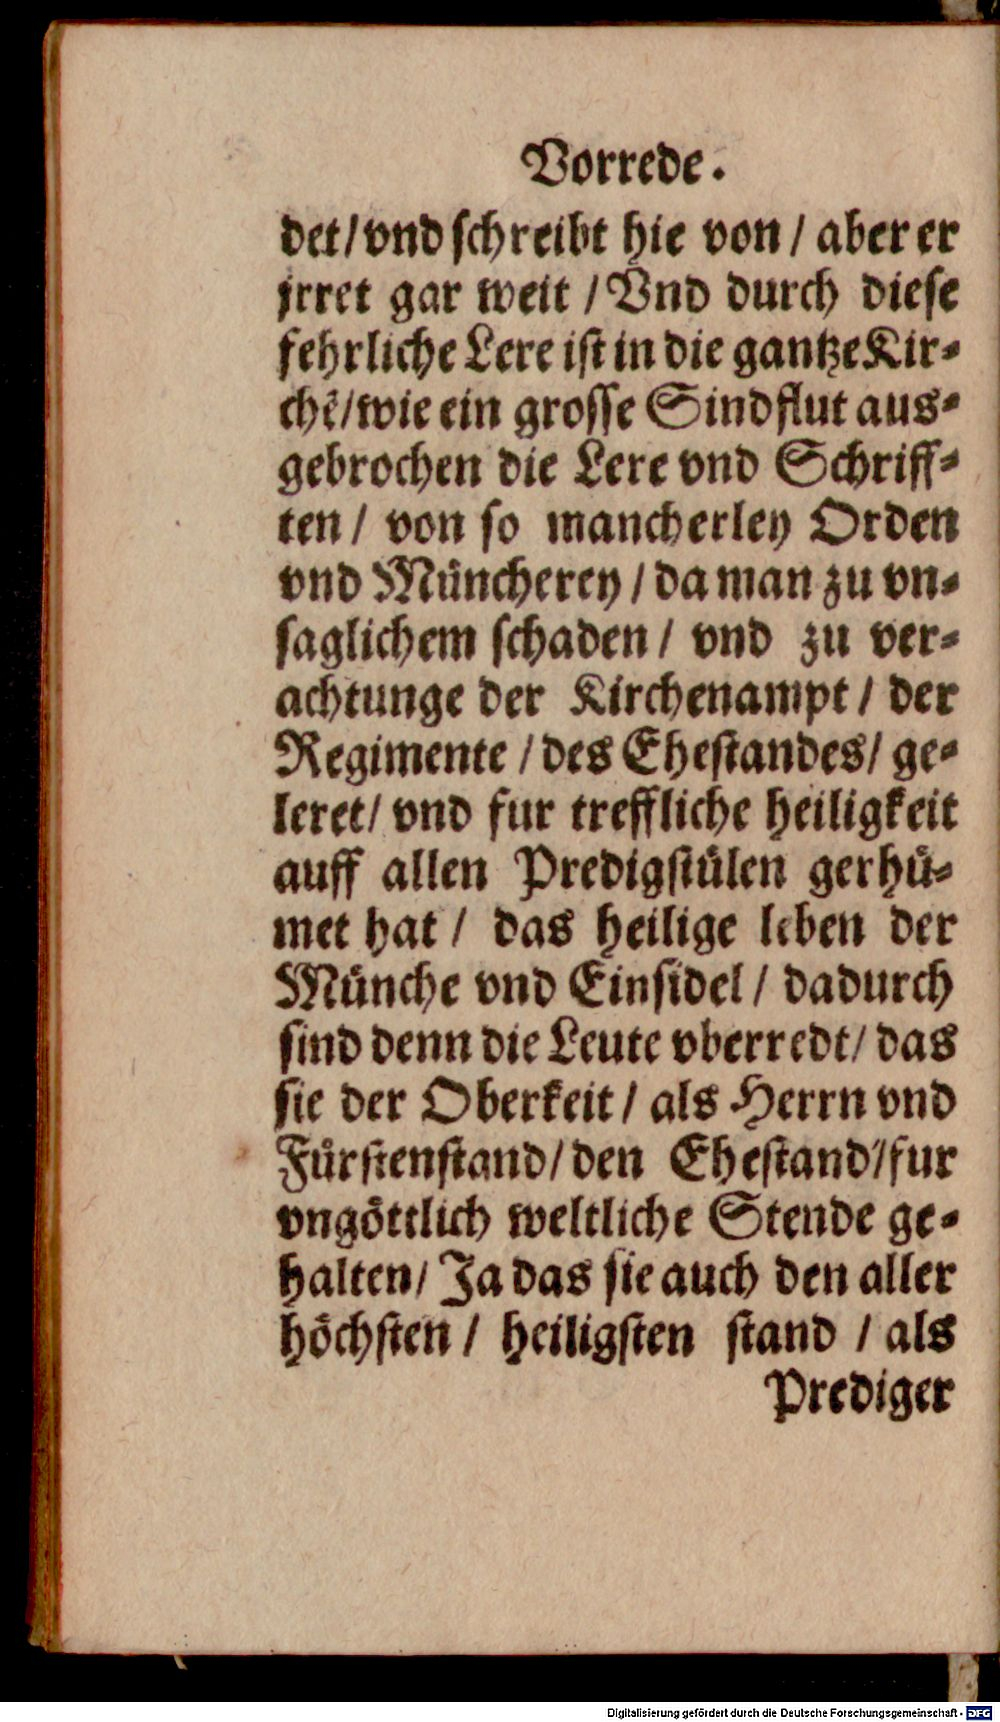 Vorrede.
det/ vnd schreibt hie von / aber er
jrret gar weit / Vnd durch diese
fehrliche Lere ist in die gantze Kir⸗
chẽ/ wie ein grosse Sindflut aus⸗
gebrochen die Lere vnd Schriff⸗
ten / von so mancherley Orden
vnd Müncherey / da man zu vn⸗
saglichem schaden / vnd zu ver⸗
achtunge der Kirchenampt / der
Regimente / des Ehestandes/ ge⸗
leret/ vnd fur treffliche heiligkeit
auff allen Predigstülen gerhü⸗
met hat / das heilige leben der
Münche vnd Einsidel / dadurch
sind denn die Leute vberredt/ das
sie der Oberkeit / als Herrn vnd
Fürstenstand/ den Ehestand / fur
vngöttlich weltliche Stende ge⸗
halten/ Ja das sie auch den aller
höchsten / heiligsten stand / als
Prediger
Digitalisierung gefördert durch die Deutsche Forschungsgemeinschaft - DFG